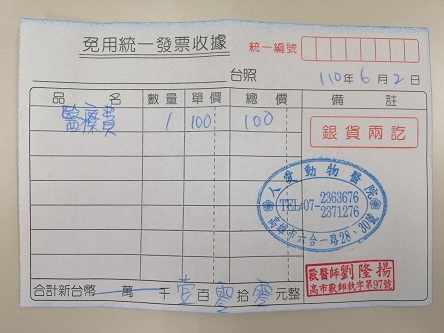 免用統一發票收據
統一編號
台照
110年6月2日
品名 數量 單價 總價 備註
醫療費 1 100 100
銀貨兩訖
人愛動物醫院
TEL:07-2363676
2371276
高雄市六合一路28、30號
獸醫師劉隆揚
高市獸師執字第97號
合計新台幣 萬 千 壹百 零拾 零元整